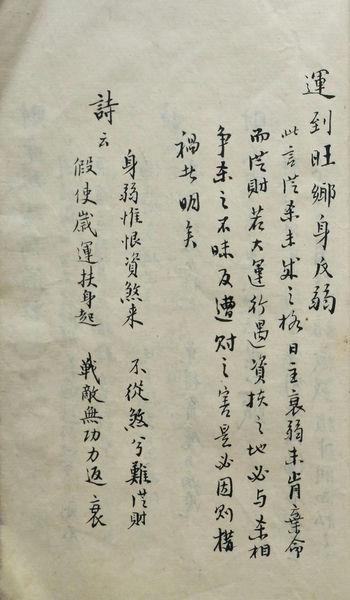 運到旺鄉身反弱
此言從煞未成之格日主衰弱未肯棄命
而從財若大運行遇資扶之地必与煞相
争煞之不味反遭财之害是必因则搆
禍甚明矣
詩云
身弱惟恨資煞来 不從煞兮難從財
假使歲運扶身起 戰敵無功力返衰